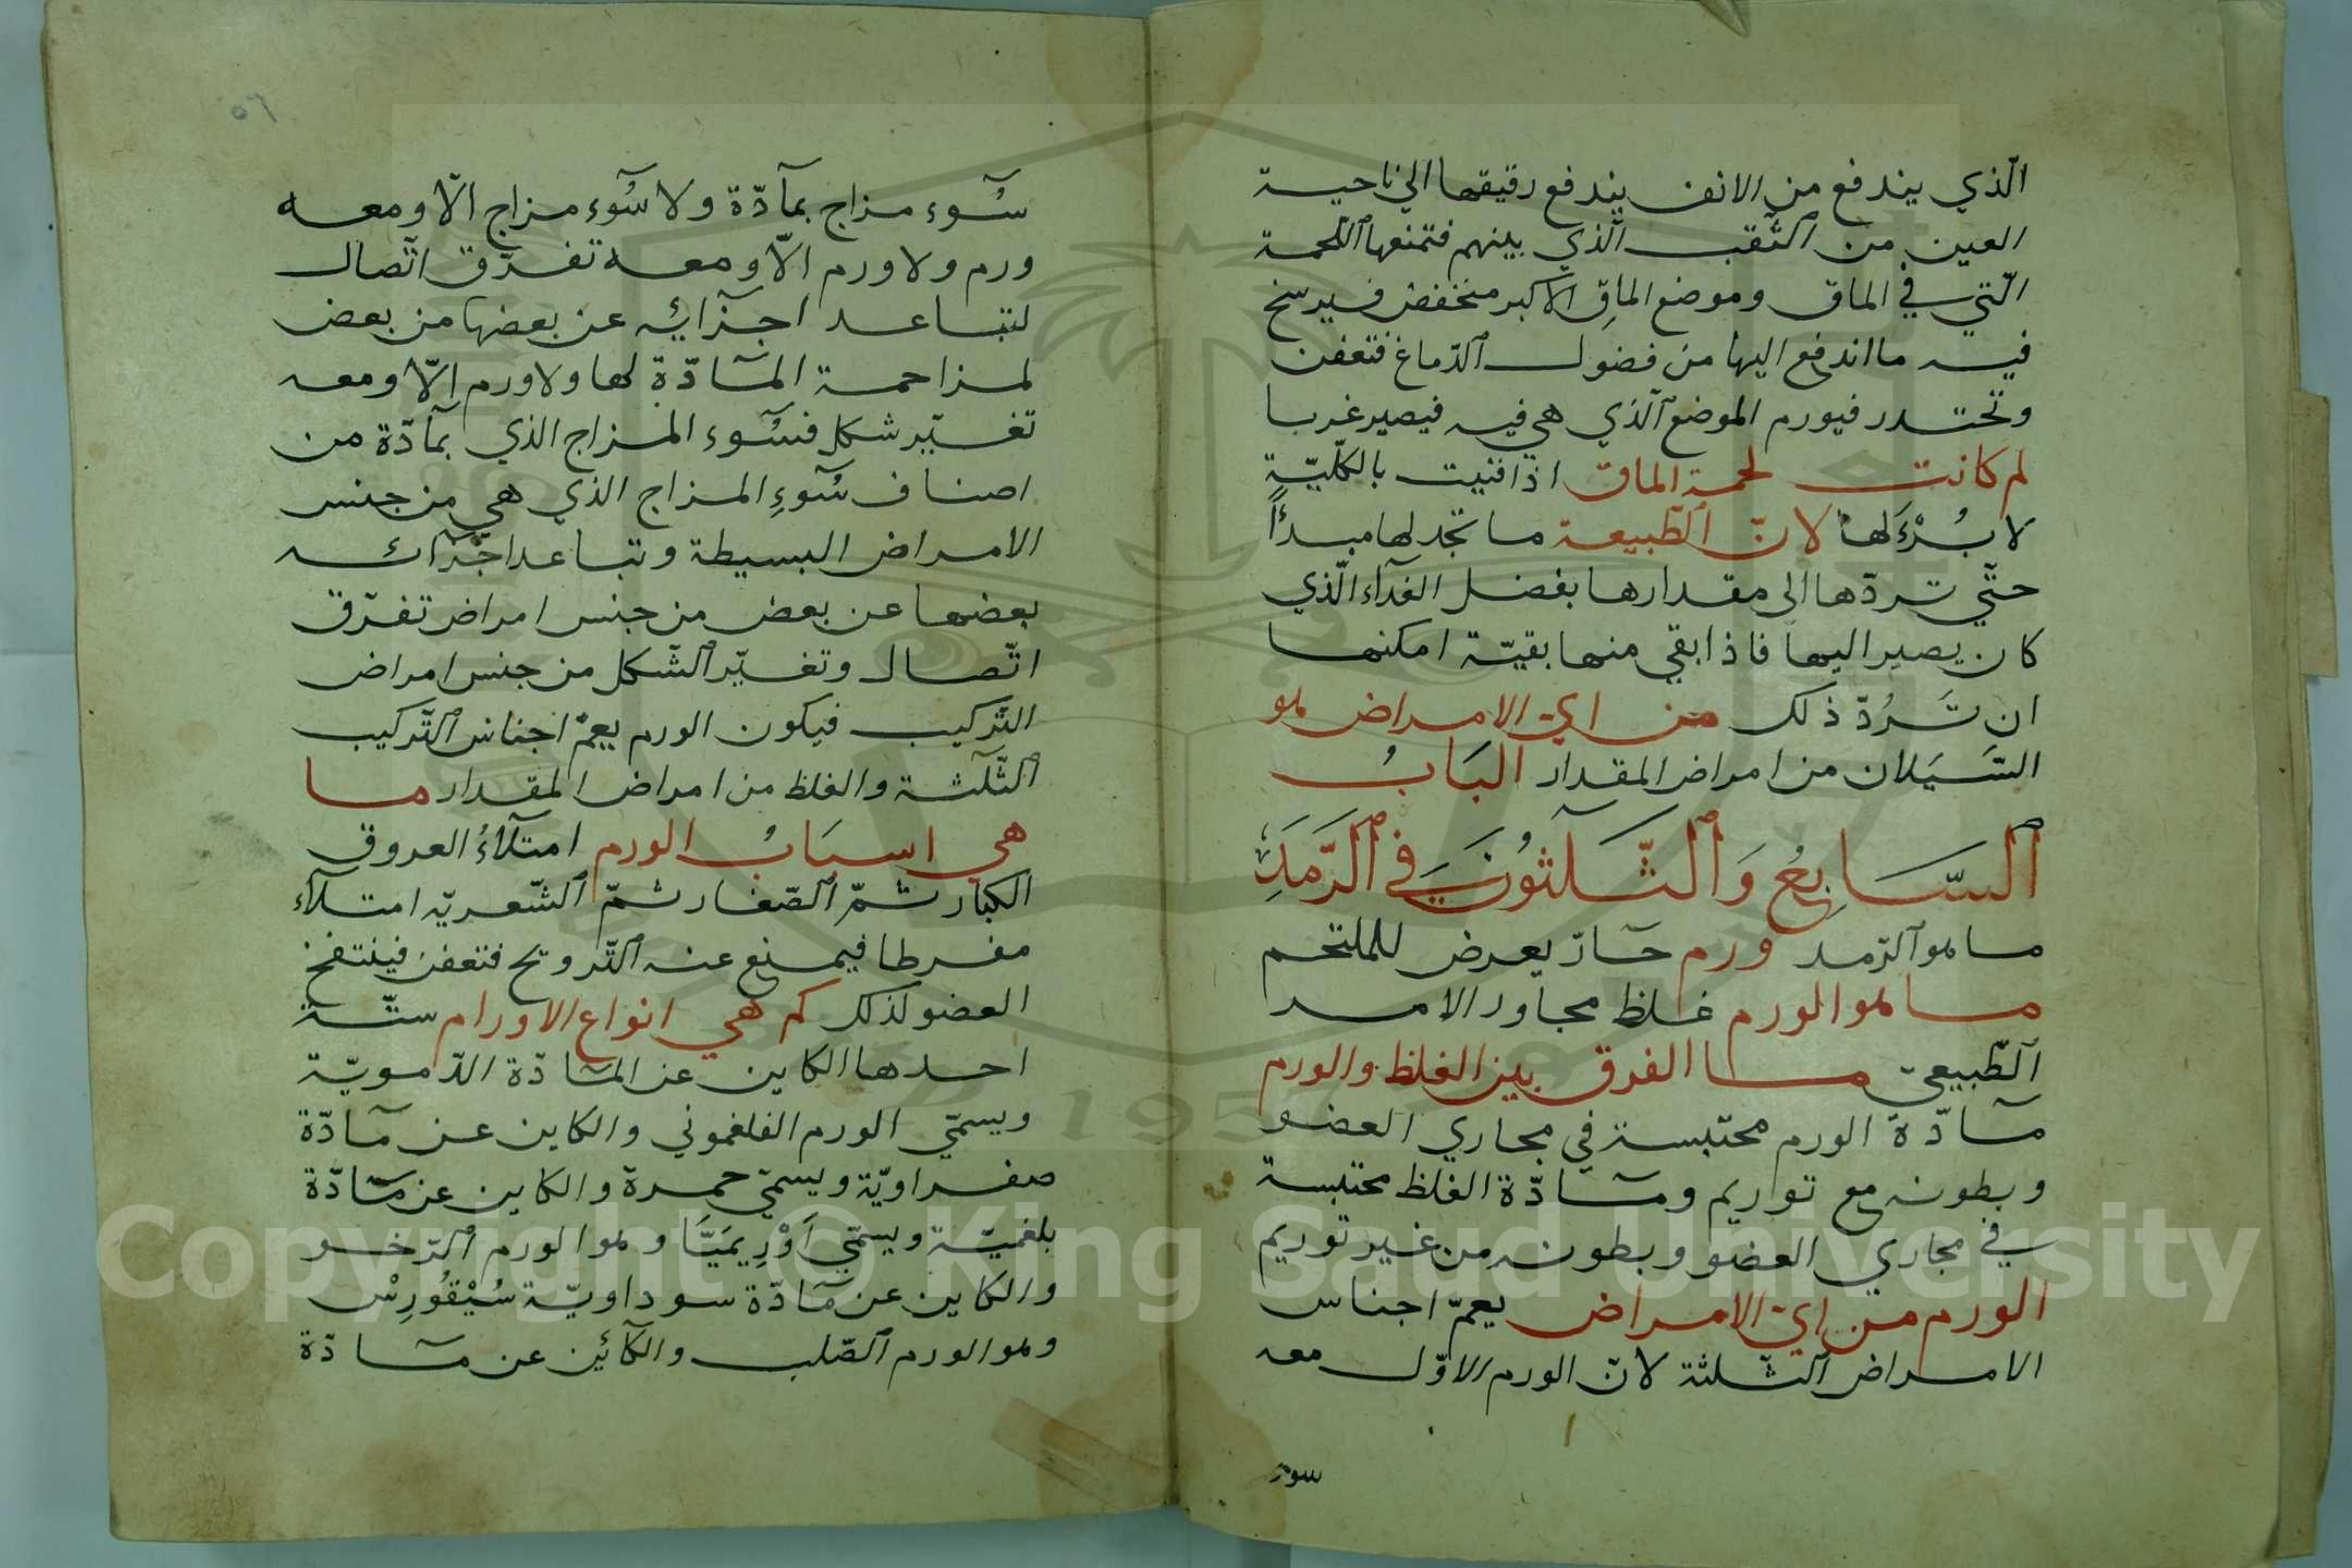 الّذي يندفع من الانف يندفع رقيقها الي ناحية
العين من الثّقب الّذي بينهم فتمنعها اللّحمة
الّتي في الماق وموضع الماق الاكبر منخفض فيرسخ
فيه ما اندفع اليها من فضول الدّماغ فتعفن
وتحتد فيورم الموضع الّذي هي فيه فيصير غربا
لم كانت لحمة الماق اذا فنيت بالكلّيّة
لا بُرْءَ لها لانّ الطّبيعة ما تجد لها مبدءًا
حتّي تردّها الى مقدارها بفضل الغذآء الّذي
كان يصير اليها فاذا بقي منها بقيّة امكنها
ان تَرُدّ ذلك من اي الامراض هو
السَّيَلان من امراض المقدار البَابُ
السَّابِعُ وَالثّلٰثوُنَ فِي الرَّمَدِ
ما هو الرّمد ورم حارّ يعرض للملتحم
ما هو الورم غلظ مجاور الامر
الطّبيعيّ ما الفرق بين الغلظ والورم
مآدّة الورم محتبسة في مجاري العضو
وبطونه مع توريم ومآدّة الغلظ محتبسة
في مجاري العضو وبطونه من غير توريم
الورم من ايّ الامراض يعمّ اجناس
الامراض الثّلثة لانّ الورم الاوّل معه
سوء
٥٦
سُوء مزاج بمآدّة ولا سُوء مزاج الّا ومعه
ورم ولا ورم الّا ومعه تفرّق اتّصال
لتباعد اجزآيه عن بعضها من بعض
لمزاحمة المآدّة لها ولا ورم الّا ومعه
تغيّر شكل فسُوء المزاج الذي بمآدّة من
اصناف سُوءِ المزاج الذي هي من جنس
الامراض البسيطة وتباعد اجزآئه
بعضها عن بعض من جنس امراض تفرّق
اتّصال وتغيّر الشّكل من جنس امراض
التّركيب فيكون الورم يعمّ اجناس التّركيب
الثّلٰثة والغلظ من امراض المقدار ما
هي اسبَابُ الورم امتلآءُ العروق
الكبار ثمّ الصّغار ثمّ الشّعريّه امتلآء
مفرطا فيمنع عنه التّرويح فتعفن فينتفخ
العضو لذلك كم هي انواع الاورام ستّة
احدها الكاين عن المآدّة الدّمويّة
ويسمّي الورم الفلغموني والكاين عن مآدّة
صفراويّة ويسمّي حمرة والكاين عن مآدّة
بلغميّة ويسمّي اَوْرِيمَيَّا وهو الورم الرّخو
والكاين عن مآدّة سوداويّة سُيْقُورِسْ
وهو الورم الصّلب والكآئين عن مآدّة
Copyright © King Saud University
1957